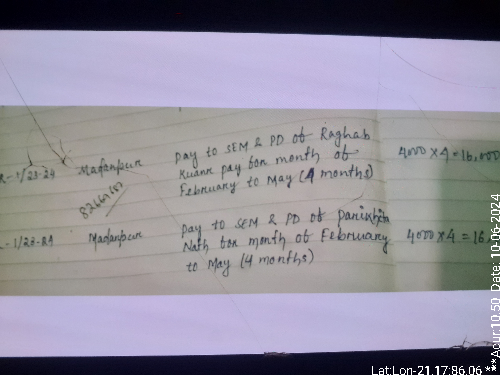 R-1/23-24 Madanpur Pay to SEM & PD of Raghab
Kuann pay bon month of
February to May (4 months)
4000 X 4 = 16,000
1/23-24 Madanpur Pay to SEM & PD of
Nath bon month of February
to May (4 months)
4000 X 4 = 16,
Lat:Lon-21.17:86.06 *** Acur:10.50 Date: 10-06-2024